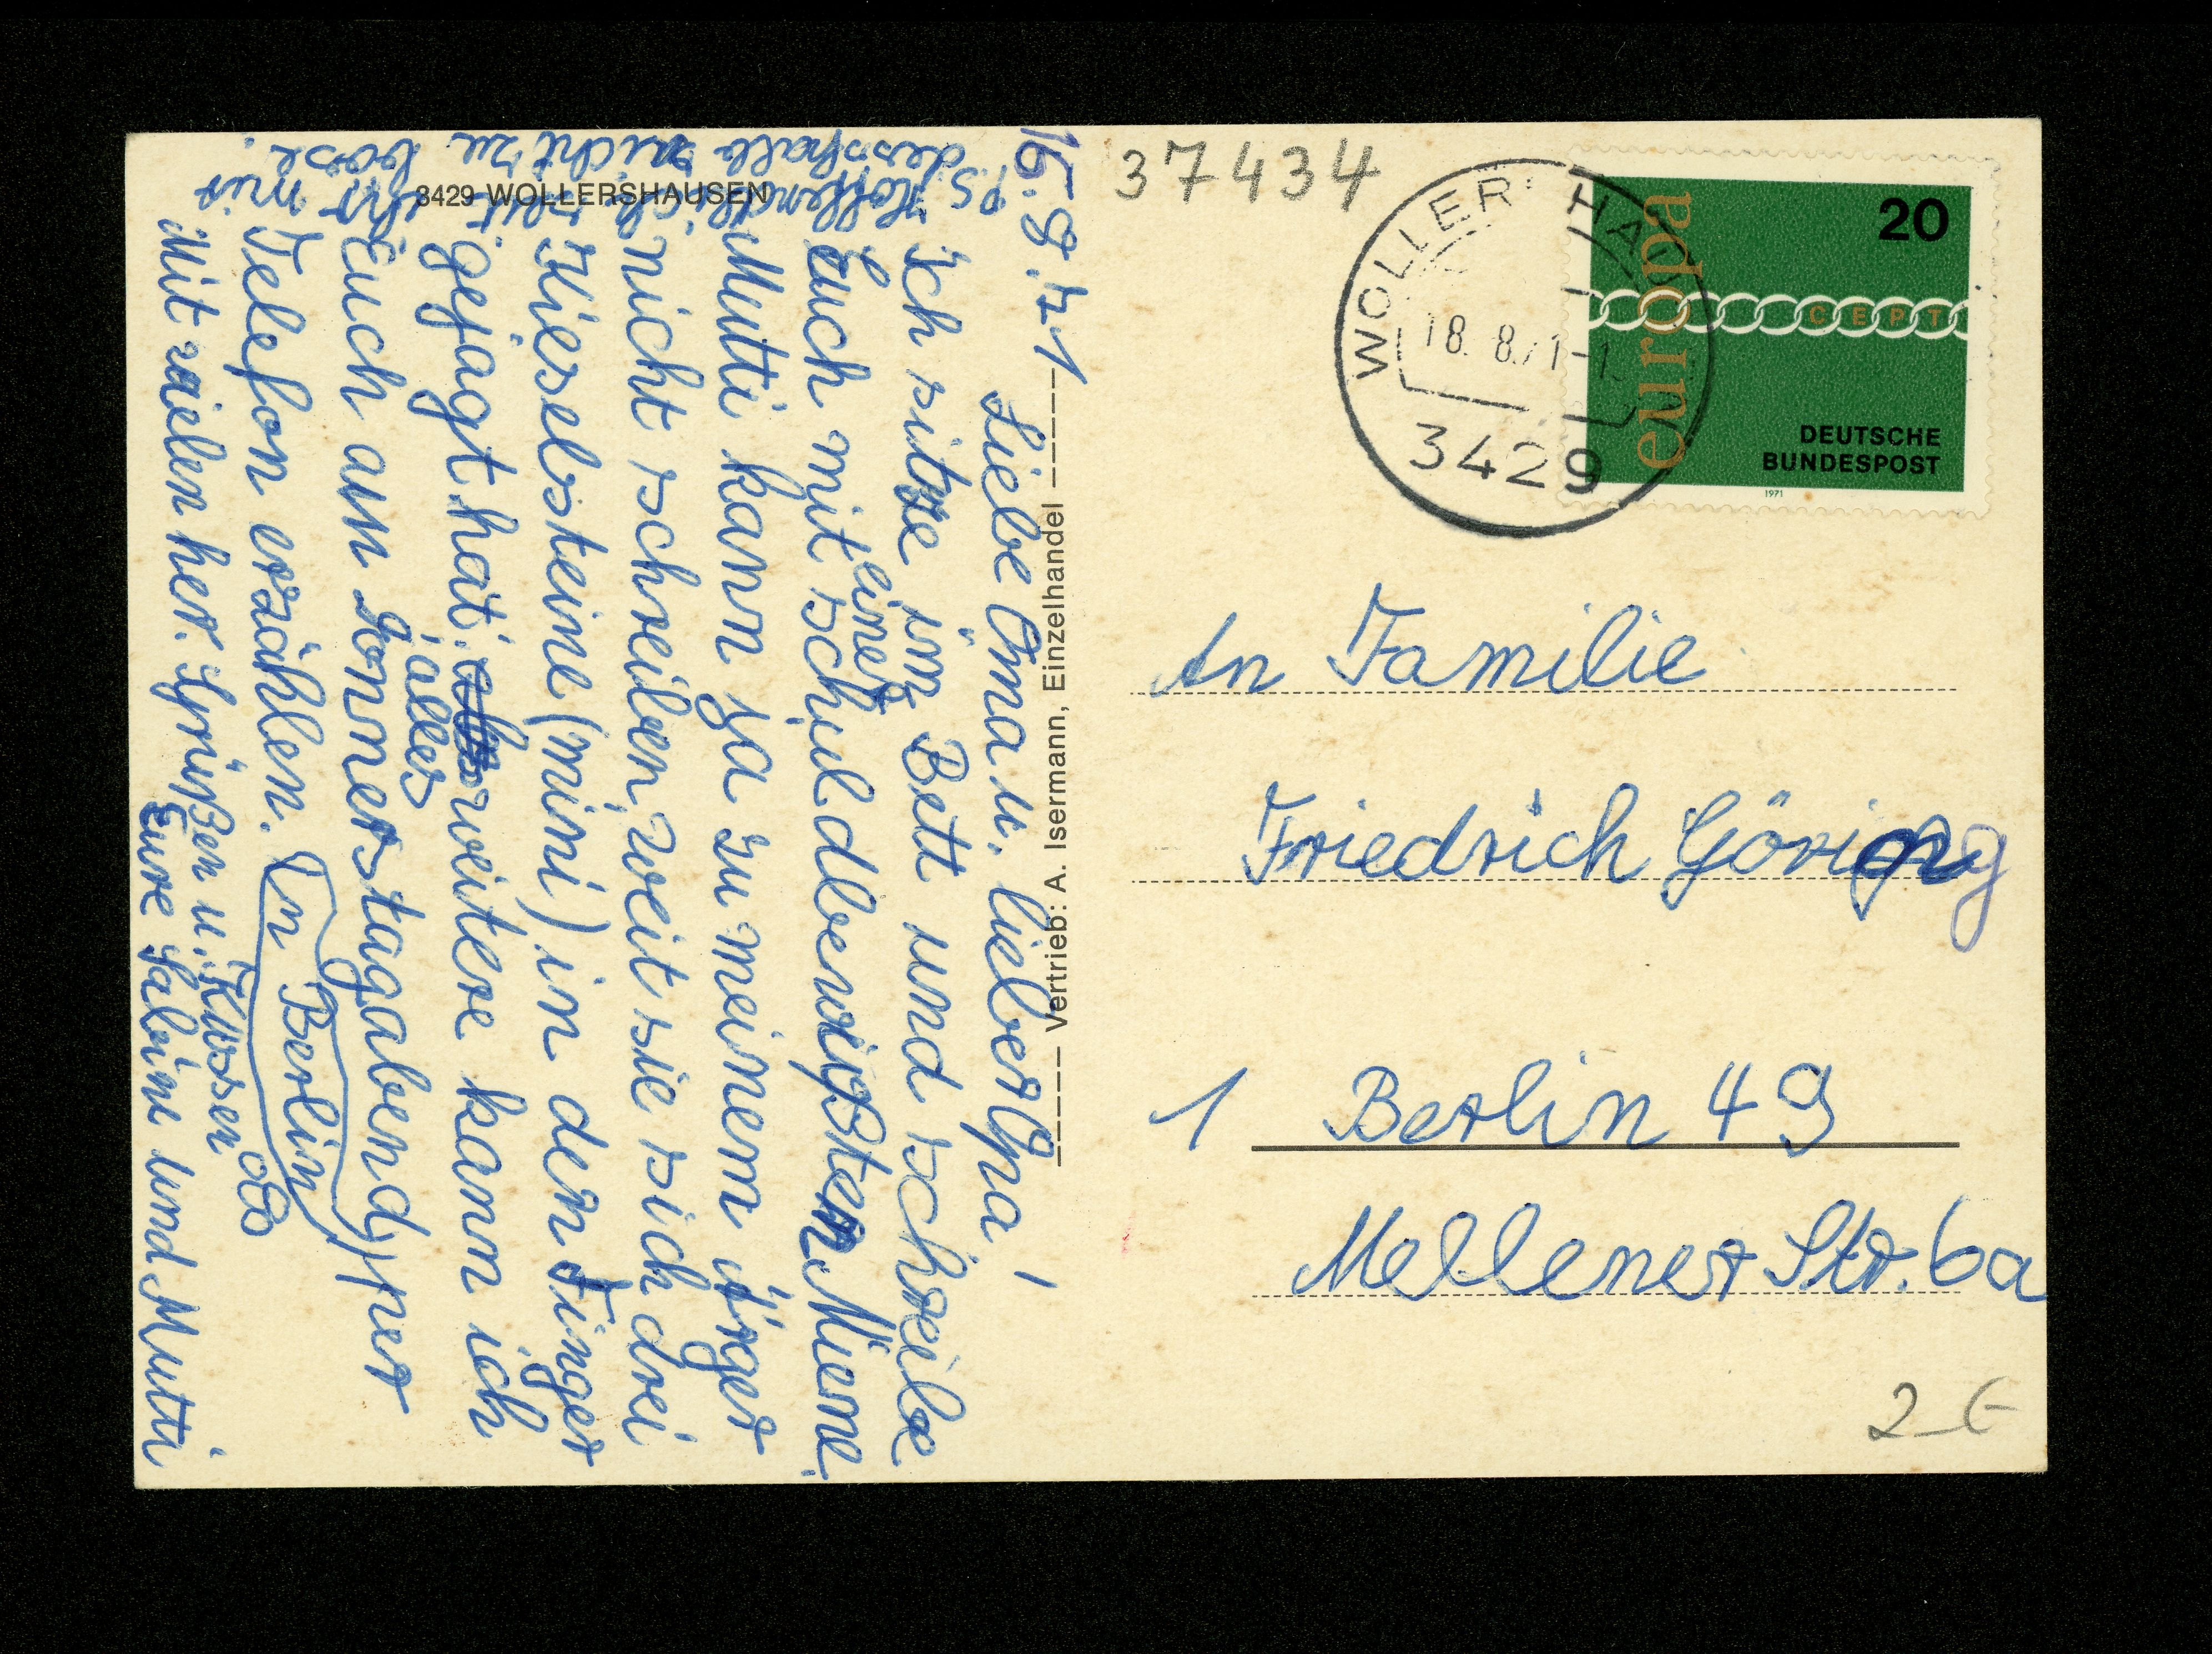 8429 WOLLERSHAUSEN
16.8.71
Liebe Oma u. lieber Opa!
Ich sitze im Bett und schreibe
Euch mit einer schuldbewußten Miene.
Mutti kann ja zu meinem Ärger
nicht schreiben, weil sie sich drei
Kieselsteine (mini) in den Finger
gejagt hat. weitere kann ich
Euch am Donnerstagabend, alles per
Telefon erzählen. (In Berlin)
Mit vielen her. Grüßen u. Küssen
Eure Sabine und Mutti
P.S. Hoffendlich seit ihr mir
desshalb nicht zu böse.
Vertrieb: A. Isermann, Einzelhandel
37434
WOLLERSHAU
18.8.71-1
3429
20
europa
CEPT
DEUTSCHE
BUNDESPOST
1971
An Familie
Friedrich Göring
1 Berlin 49
Mellener Str. 6a
2-€